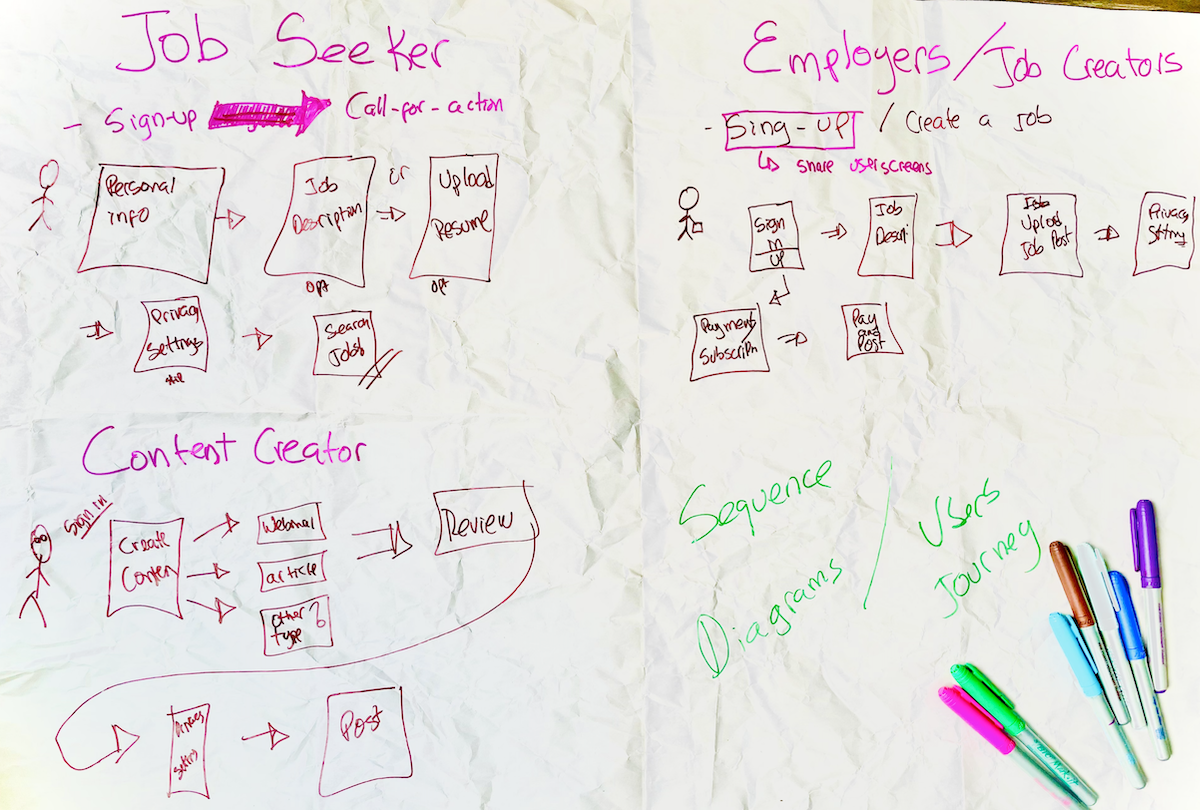 Job Seeker
- Sign-up Call-for-action
Personal
info
Job
Description
or
Upload
Resume
opt
opt
Privacy
Settings
Search
Jobs
Employers/Job Creators
- Sing-up / Create a Job
share userscreens
Sign
in
up
Job
Descri
Job
Upload
Job Post
Privacy
Sttng
Payment
Subscriptn
Pay
and
Post
Content Creator
Sign in
Create
Conten
article
other?
type
Review
Privacy
Post
Sequence
Diagrams
/
Users
Journey